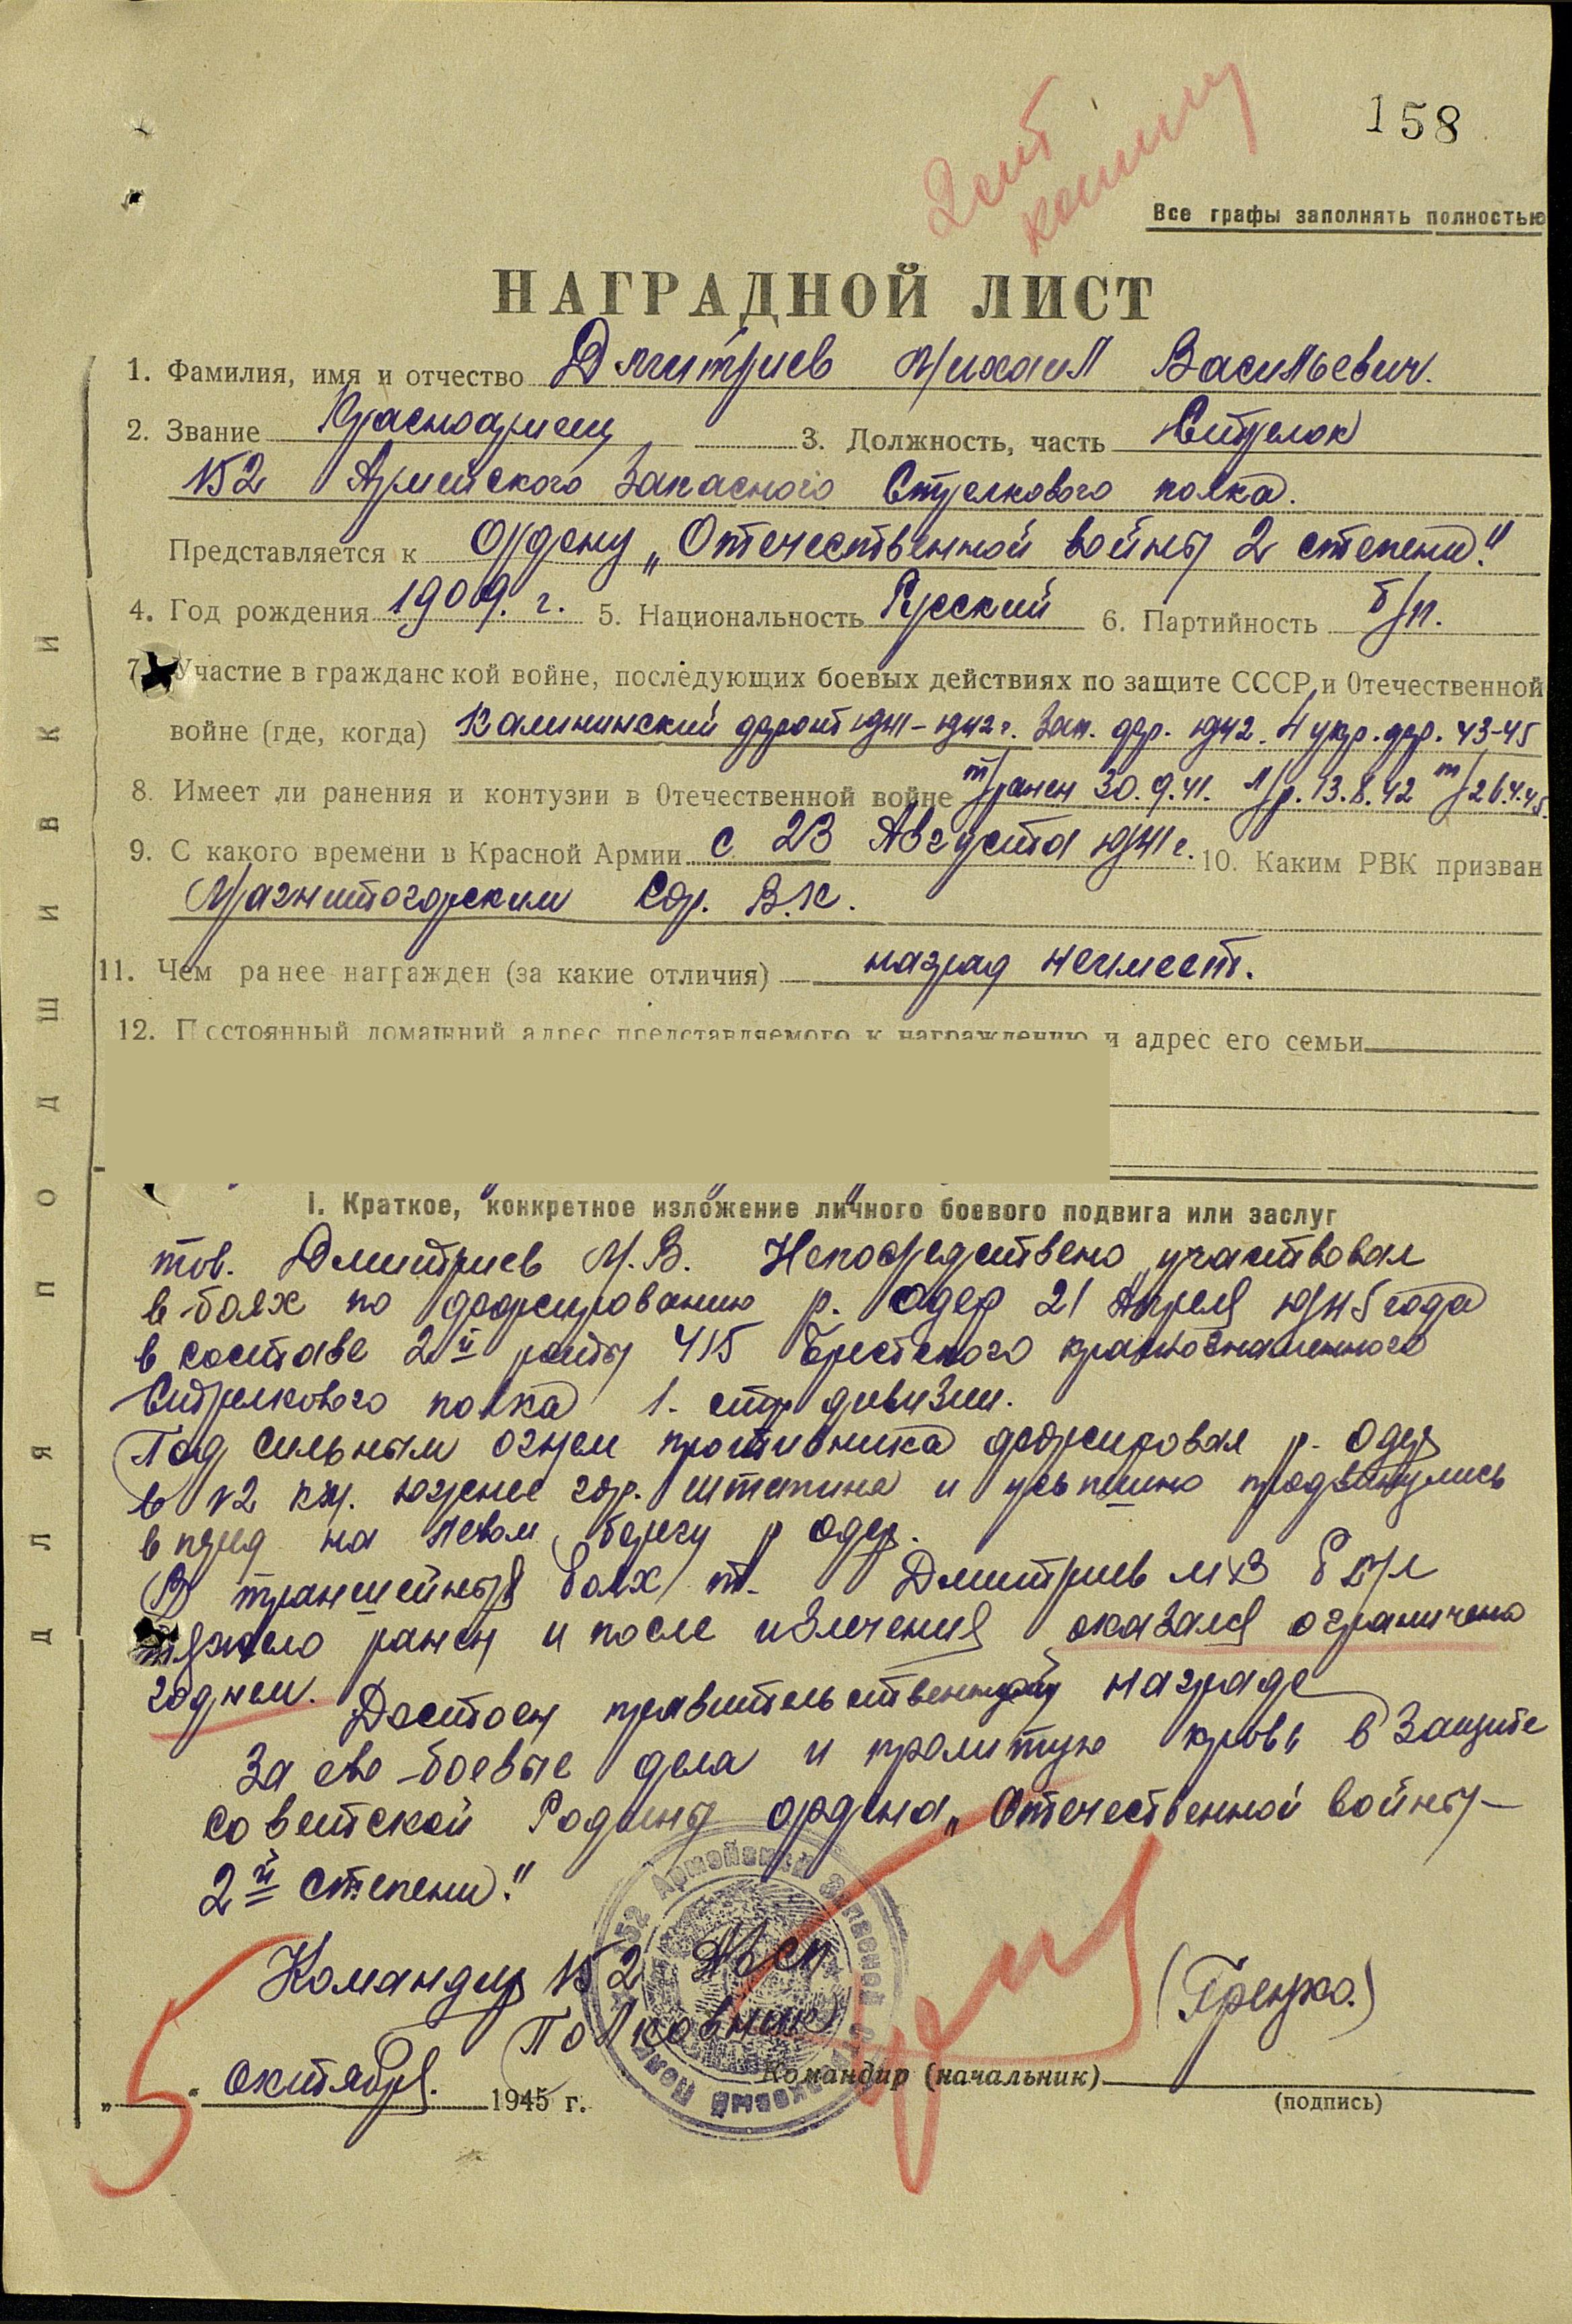 158
Все графы заполнять полностью
НАГРАДНОЙ ЛИСТ
1. Фамилия, имя и отчество Дмитриев Михаил Васильевич.
2. Звание Красноармеец 3. Должность, часть Стрелок
152 Армейского Запасного Стрелкового полка.
Представляется к Ордену „Отечественной войны 2 степени."
4. Год рождения 1909. г. 5. Национальность Русский 6. Партийность б/п.
7. Участие в гражданской войне, последующих боевых действиях по защите СССР и Отечественной
войне (где, когда) Калининский фронт 1941-1942 г. Зап. фр. 1942. 4 укр. фр. 43-45
8. Имеет ли ранения и контузии в Отечественной войне т/ранен 30.9.41. л/р. 13.8.42 т/26.4.45.
9. С какого времени в Красной Армии с 23 Августа 1941 г. 10. Каким РВК призван
Магнитогорским Гор. В.К.
11. Чем ранее награжден (за какие отличия) наград неимеет.
12. Постоянный домашний адрес представляемого к награждению и адрес его семьи
I. Краткое, конкретное изложение личного боевого подвига или заслуг
тов. Дмитриев М.В. Непосредствено участвовал
в боях по форсированию р. Одер 21 Апреля 1945 года
в составе 2й роты 415 Брестского краснознаменного
Стрелкового полка 1. стр дивизии.
Под сильным огнем противника форсировал р. Одер
в 12 км. южнее гор. Штетина и успешно продвинулись
в перед на левом берегу р Одер.
В траншейных боях т. Дмитриев М В был
тяжело ранен и после излечения оказался ограничено
годнем. Достоен правительственной награде
За ево боевые дела и пролитую кровь в Защите
советской Родины ордена „Отечественной войны
2й степени."
Командир 152 АЗСП
Полковник (Гренко.)
Командир (начальник)
(подпись)
5 „ октября. 1945 г.
152 Армейский Запасной Стрелковый Полк
ДЛЯ ПОДШИВКИ